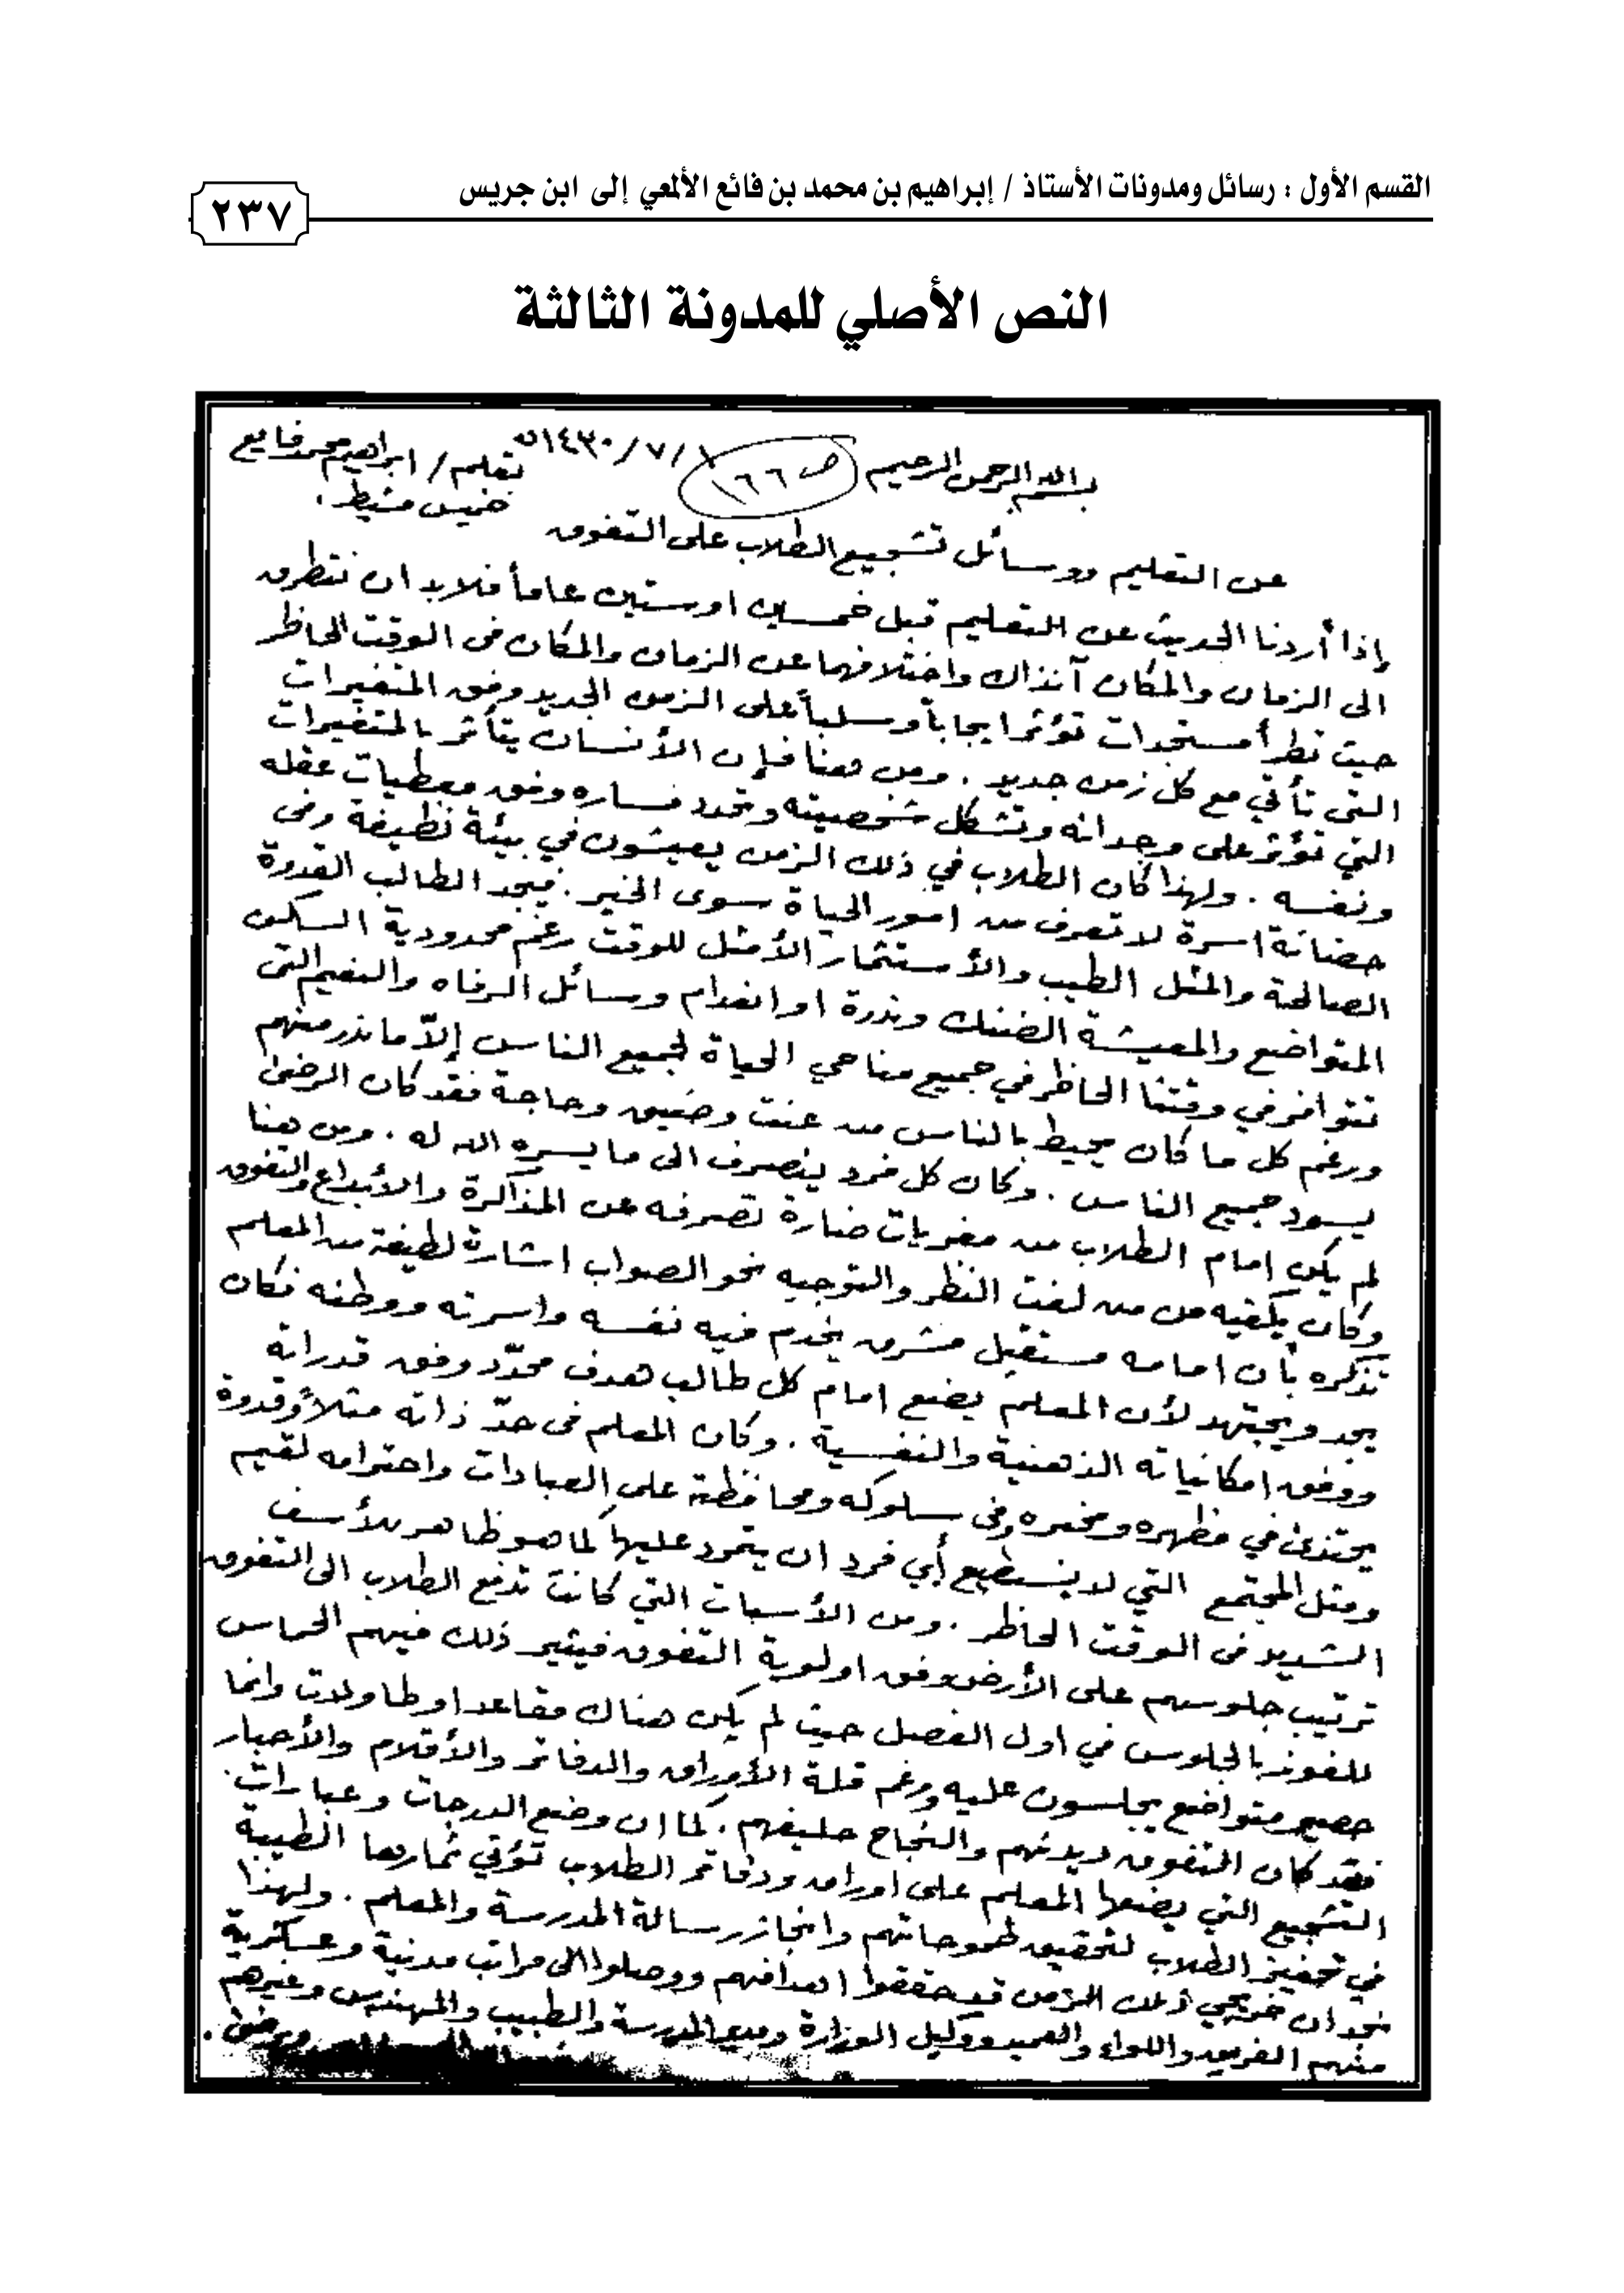 القسم الأول : رسائل ومدونات الأستاذ / إبراهيم بن محمد بن فائع الألمعي إلى ابن جريس
٢٣٧
النص الأصلي للمدونة الثالثة
بسم الله الرحمن الرحيم ص ١٦٦ ١/٧/١٤٣٠هـ بقلم / ابراهيم محمد فايع
خميس مشيط .
عن التعليم ووسائل تشجيع الطلاب على التفوق
وإذا أردنا الحديث عن التعليم قبل خمسين اوستين عاماً فلابد ان نتطرق
الى الزمان والمكان آنذاك واختلافهما عن الزمان والمكان فى الوقت الحاظر
حيث تطرأ مستجدات تؤثر ايجاباً وسلباً على الزمن الجديد وفق المتغيرات
التى تأتي مع كل زمن جديد . ومن هنا فإن الأنسان يتأثر بالمتغيرات
التي تؤثر على وجدانه وتشكل شخصيته وتحدد مساره وفق معطيات عقله
ونفسه . ولهذا كان الطلاب في ذلك الزمن يعيشون في بيئة نظيفة وفى
حضانة اسرة لا تعرف من امور الحياة سوى الخير . فيجد الطالب القدوة
الصالحة والمثل الطيب والأستثمار الأمثل للوقت رغم محدودية السكن
المتواضع والمعيشة الضنك وندرة او انعدام وسائل الرفاه والنعيم التى
تتوافر في وقتنا الحاظر في جميع مناحي الحياة لجميع الناس إلاّ ما ندر منهم
ورغم كل ما كان يحيط بالناس من عنت وضيق وحاجة فقد كان الرضى
يسود جميع الناس . وكان كل فرد ينصرف الى ما يسره الله له . ومن هنا
لم يكن امام الطلاب من مغريات ضارة تصرفه عن المذاكرة والأبداع والتفوق
وكان يكفيه من من لفت النظر والتوجيه نحو الصواب اشارة لطيفة من المعلم
تذكره بأن امامه مستقبل مشرق يخدم فيه نفسه واسرته ووطنه فكان
يجد ويجتهد لأن المعلم يضع امام كل طالب هدف محدّد وفق قدراته
ووفق امكانياته الذهنية والنفسية . وكان المعلم فى حدّ ذاته مثلاً وقدوة
يحتذى في مظهره ومخبره وفى سلوكه ومحافظته على العبادات واحترامه لقيم
ومثل المجتمع التي لا يستطيع أي فرد ان يتمرد عليها كما هو ظاهر للأسف
الشديد فى الوقت الحاظر . ومن الأسباب التي كانت تدفع الطلاب الى التفوق
ترتيب جلوسهم على الأرض وفق اولوية التفوق فيثير ذلك فيهم الحماس
للفوز بالجلوس في اول الفصل حيث لم يكن هناك مقاعد او طاولات وانما
حصير متواضع يجلسون عليه ورغم قلة الأوراق والدفاتر والأقلام والأحبار
فقد كان التفوق ديدنهم والنجاح حليفهم . كما ان وضع الدرجات وعبارات
التشجيع التي يضعها المعلم على اوراق ودفاتر الطلاب تؤتي ثمارها الطيبة
في تحفيز الطلاب لتحقيق طموحاتهم وانجاز رسالة المدرسة والمعلم . ولهذا
نجد ان خريجي ذلك الزمن قد حققوا اهدافهم ووصلوا الى مراتب مدنية وعسكرية
منهم الفريق واللواء والعميد ووكيل الوزارة ومدير المدرسة والطبيب والمهندس وغيرهم